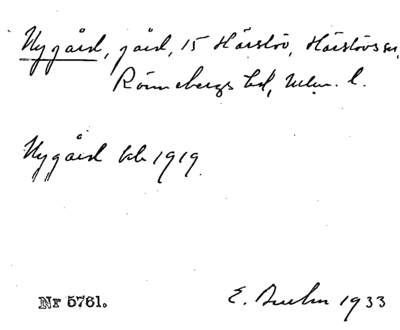 Nygård, gård, 15 Härslöv, Härslövs sn,
Rönnebergs hd, Mlm. l.
Nygård kb 1919.
Nr 5761.
E. 1933